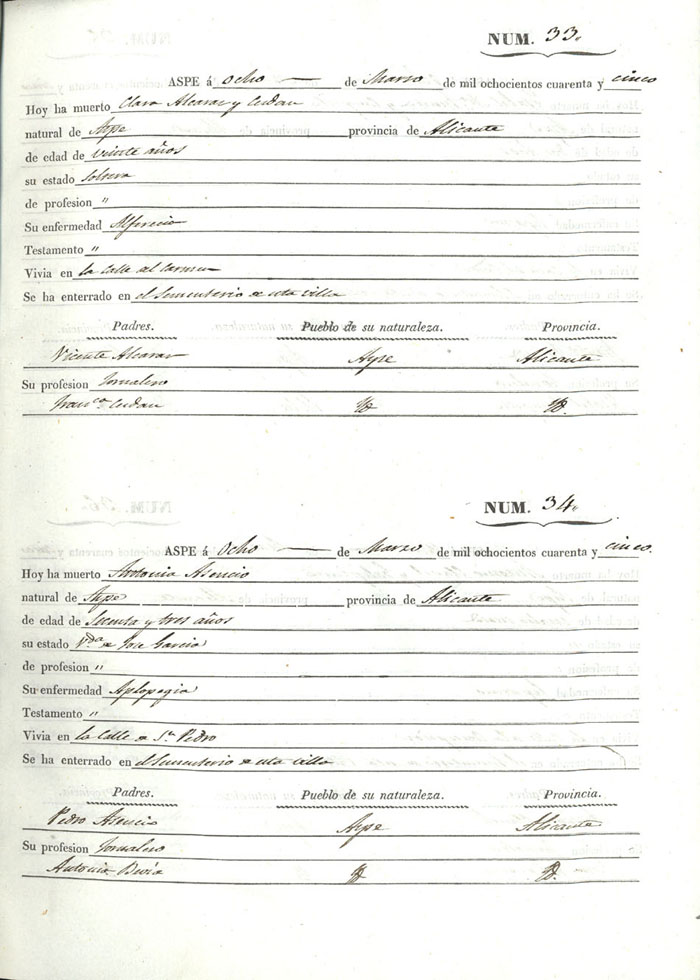 NUM. 33.
ASPE á Ocho — de Marzo de mil ochocientos cuarenta y cinco
Hoy ha muerto Clara Alcaraz y Cerdan
natural de Aspe provincia de Alicante
de edad de veinte años
su estado soltera
de profesion "
Su enfermedad Alferecia
Testamento "
Vivia en la Calle del Carmen
Se ha enterrado en el Sementerio de esta villa
Padres. Pueblo de su naturaleza. Provincia.
Vicente Alcaraz Aspe Alicante
Su profesion Jornalero
Franca Cerdan Yd Yd.
NUM. 34.
ASPE á Ocho — de Marzo de mil ochocientos cuarenta y cinco.
Hoy ha muerto Antonia Asencio
natural de Aspe provincia de Alicante
de edad de Secenta y tres años
su estado Vda de Jose Garcia
de profesion "
Su enfermedad Aplopegia
Testamento "
Vivia en la Calle de Sn Pedro
Se ha enterrado en el Sementerio de esta villa
Padres. Pueblo de su naturaleza. Provincia.
Pedro Asencio Aspe Alicante
Su profesion Jornalero
Antonia Yd Yd.